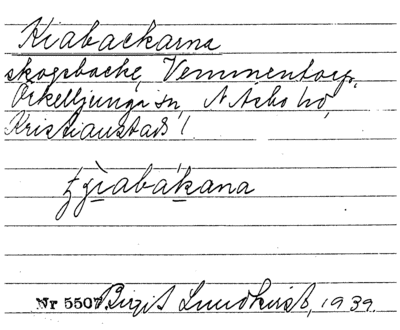 Kiabackarna
skogsbacke, Vemmentorp,
Örkelljunga sn, N Åsbo hd,
Kristianstads l
Nr 5507. Birgit Lundkvist, 1939.